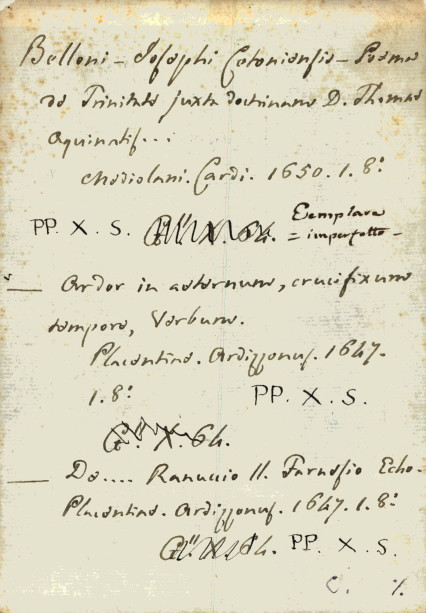 Belloni - Josephi Cotoniensis - Poema
de Trinitate juxta doctrinam D. Thomae
Aquinatis...
Mediolani. Cardi. 1650. 1. 8º
PP. X. S. G.II. X. 64. Esemplare
= imperfetto -
— Ardor in aeternum, crucifixum
tempore, Verbum.
Placentiae. Ardizzonus. 1647.
1. 8º PP. X. S.
G.II. X. 64.
— De.... Ranuccio II. Farnesio Echo.
Placentiae. Ardizzonus. 1647. 1. 8º
64. PP. X. S.
C. %.